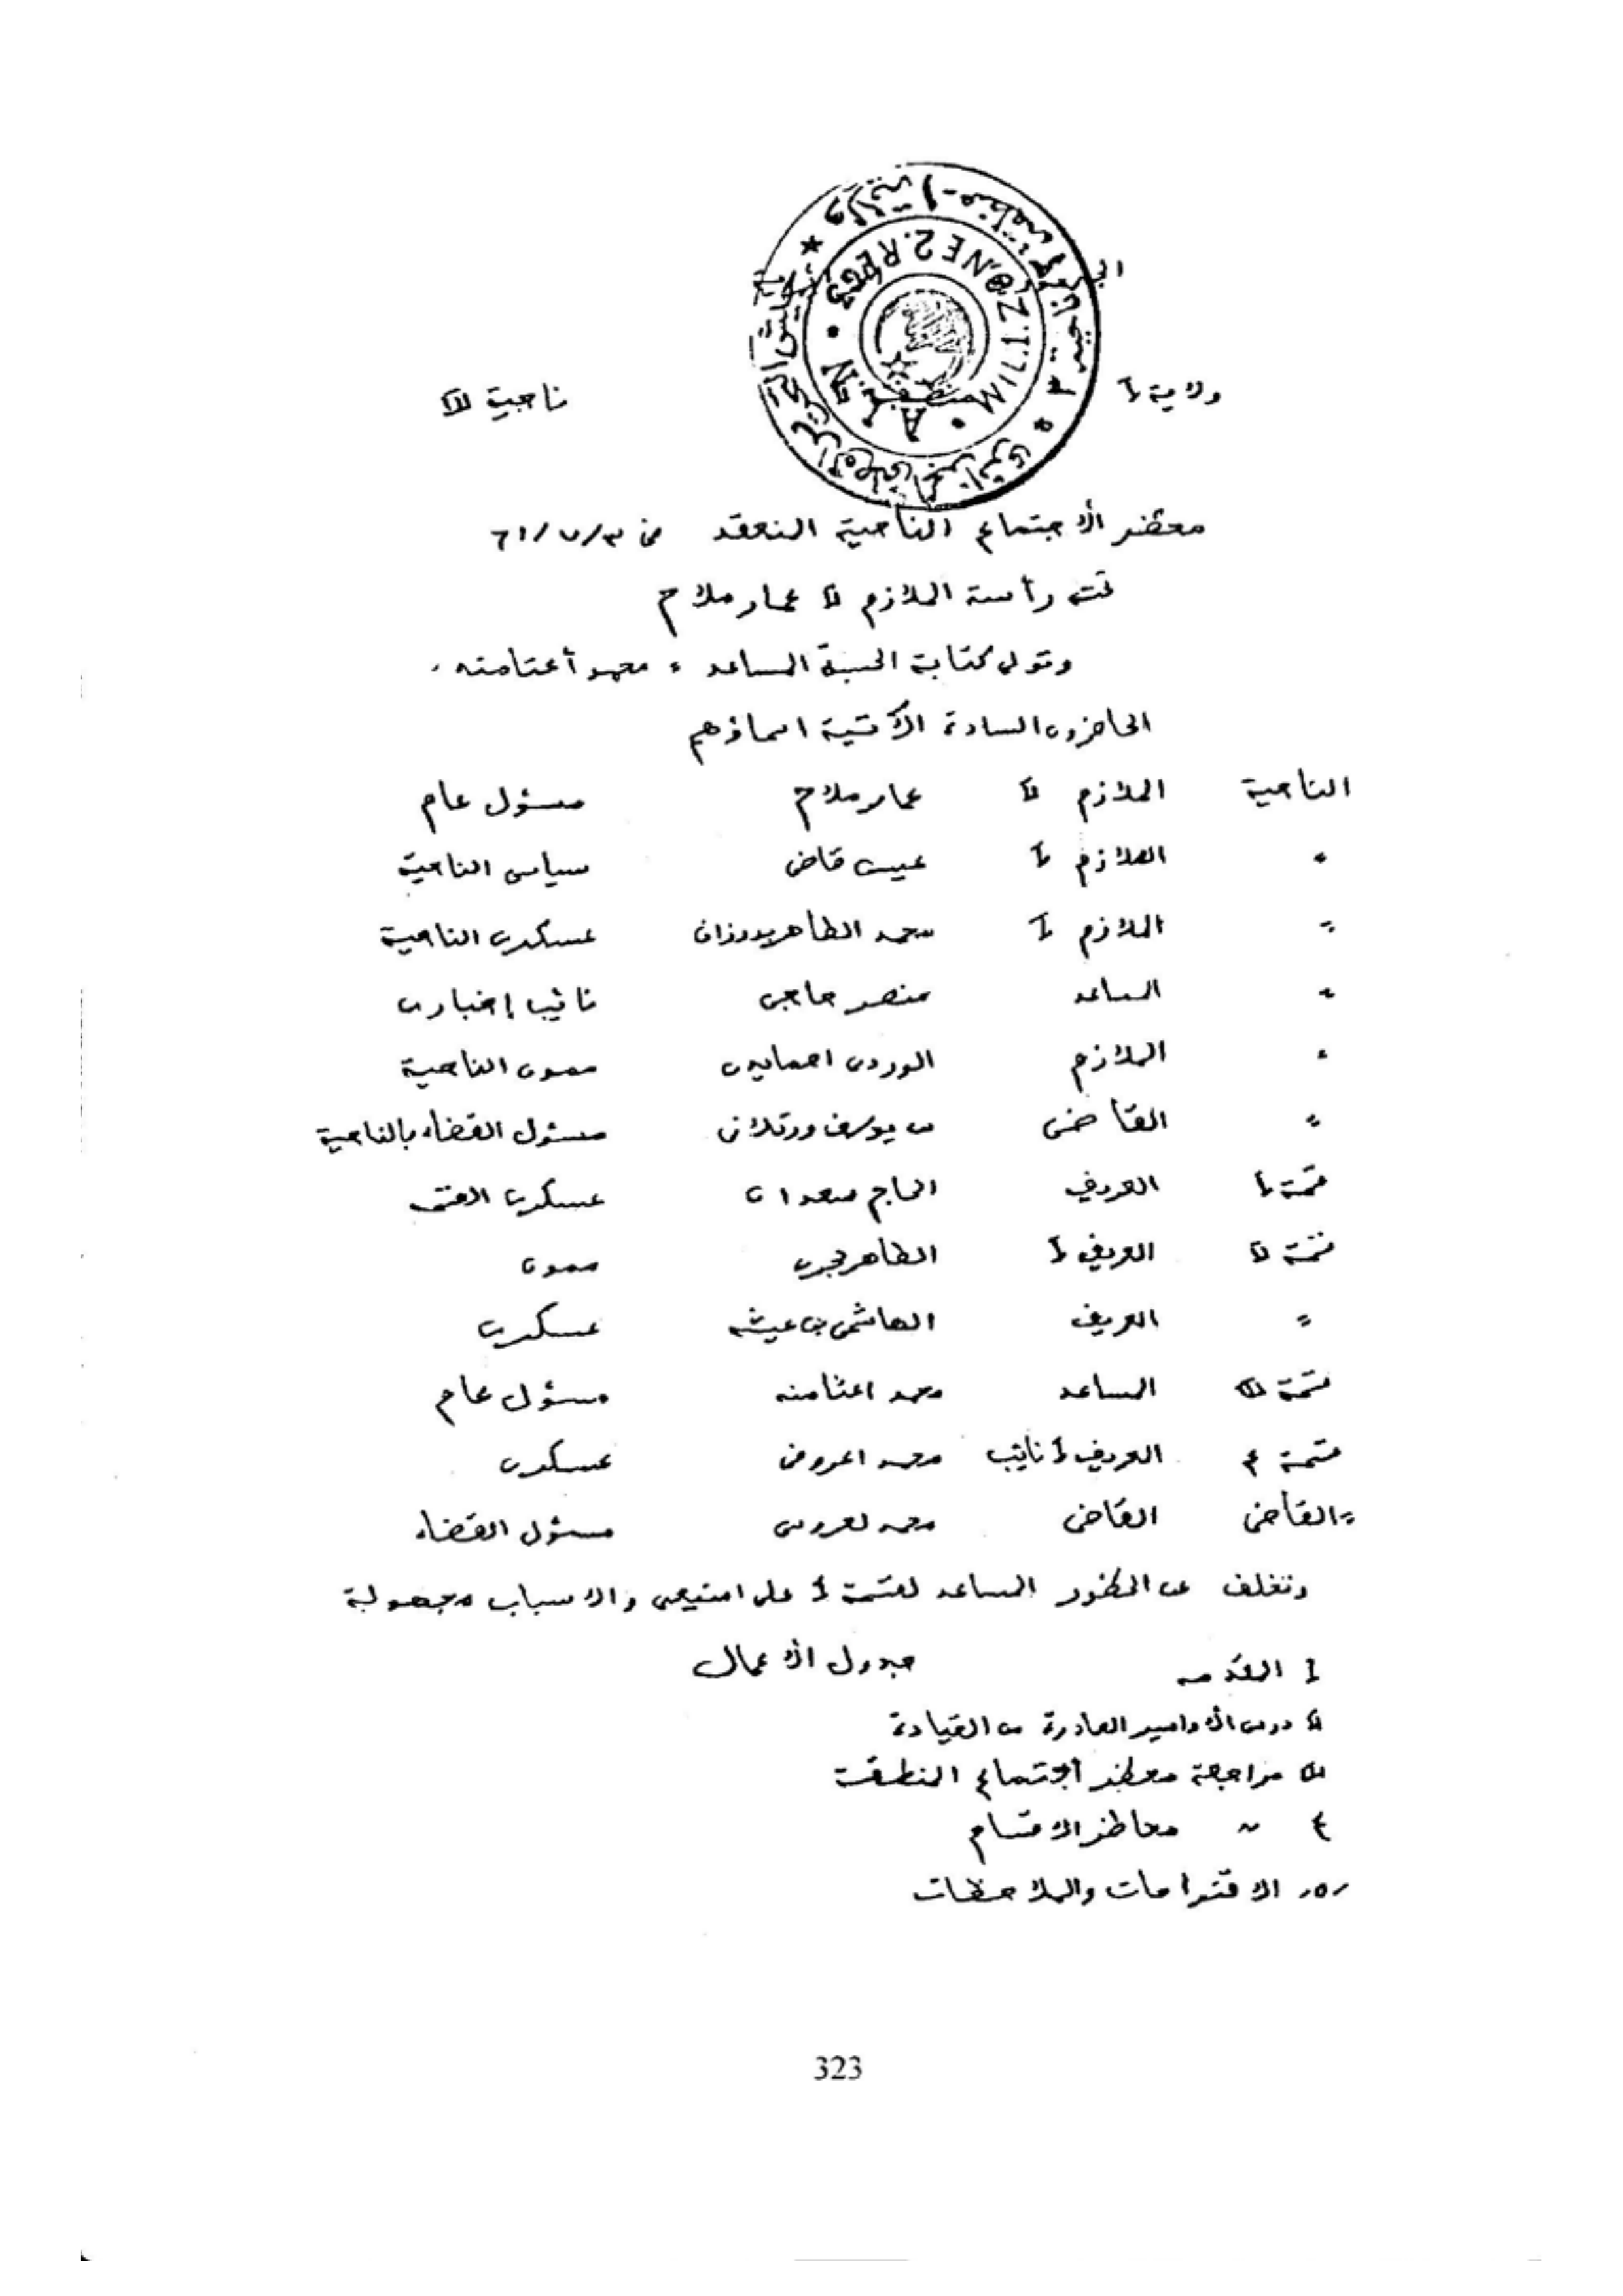 ولاية 1
ناحية 3
محضر الاجتماع الناحية المنعقد في 61/7/3
تحت رأسة الملازم 2 عمار ملاح
وتولى كتابة الجلسة المساعد محمد أعتامنه
الحاضرون السادة الآتية اسماؤهم
الناحية الملازم 2 عمار ملاح مسؤل عام
" الملازم 1 عيسى قاضي سياسي الناحية
" الملازم 1 محمد الطاهر بووزان عسكري الناحية
" المساعد منصر حاجي نائب إخباري
" الملازم الوردي احمايدي ممون الناحية
" القاضي سي يوسف ورتلاني مسئول القضاء بالناحية
قسمة 1 العريف الحاج سعدان عسكري القسم
قسمة 2 العريف 1 الطاهر ممون
" العريف الهاشمي بن عيشه عسكري
قسمة 3 المساعد محمد اعثامنه مسؤل عام
قسمة 4 العريف 1 نائب محمد اعروض عسكري
" القاضي القاضي محمد لعروسي مسئول القضاء
وتخلف عن الحظور المساعد لقسمة 1 على والاسباب مجهولة
جدول الأعمال
1 المقدمه
2 درس الأوامير الصادرة من القيادة
3 مراجعة محظر اجتماع المنطقة
4 " محاظر الاقسام
5 الاقتراحات والملاحظات
323